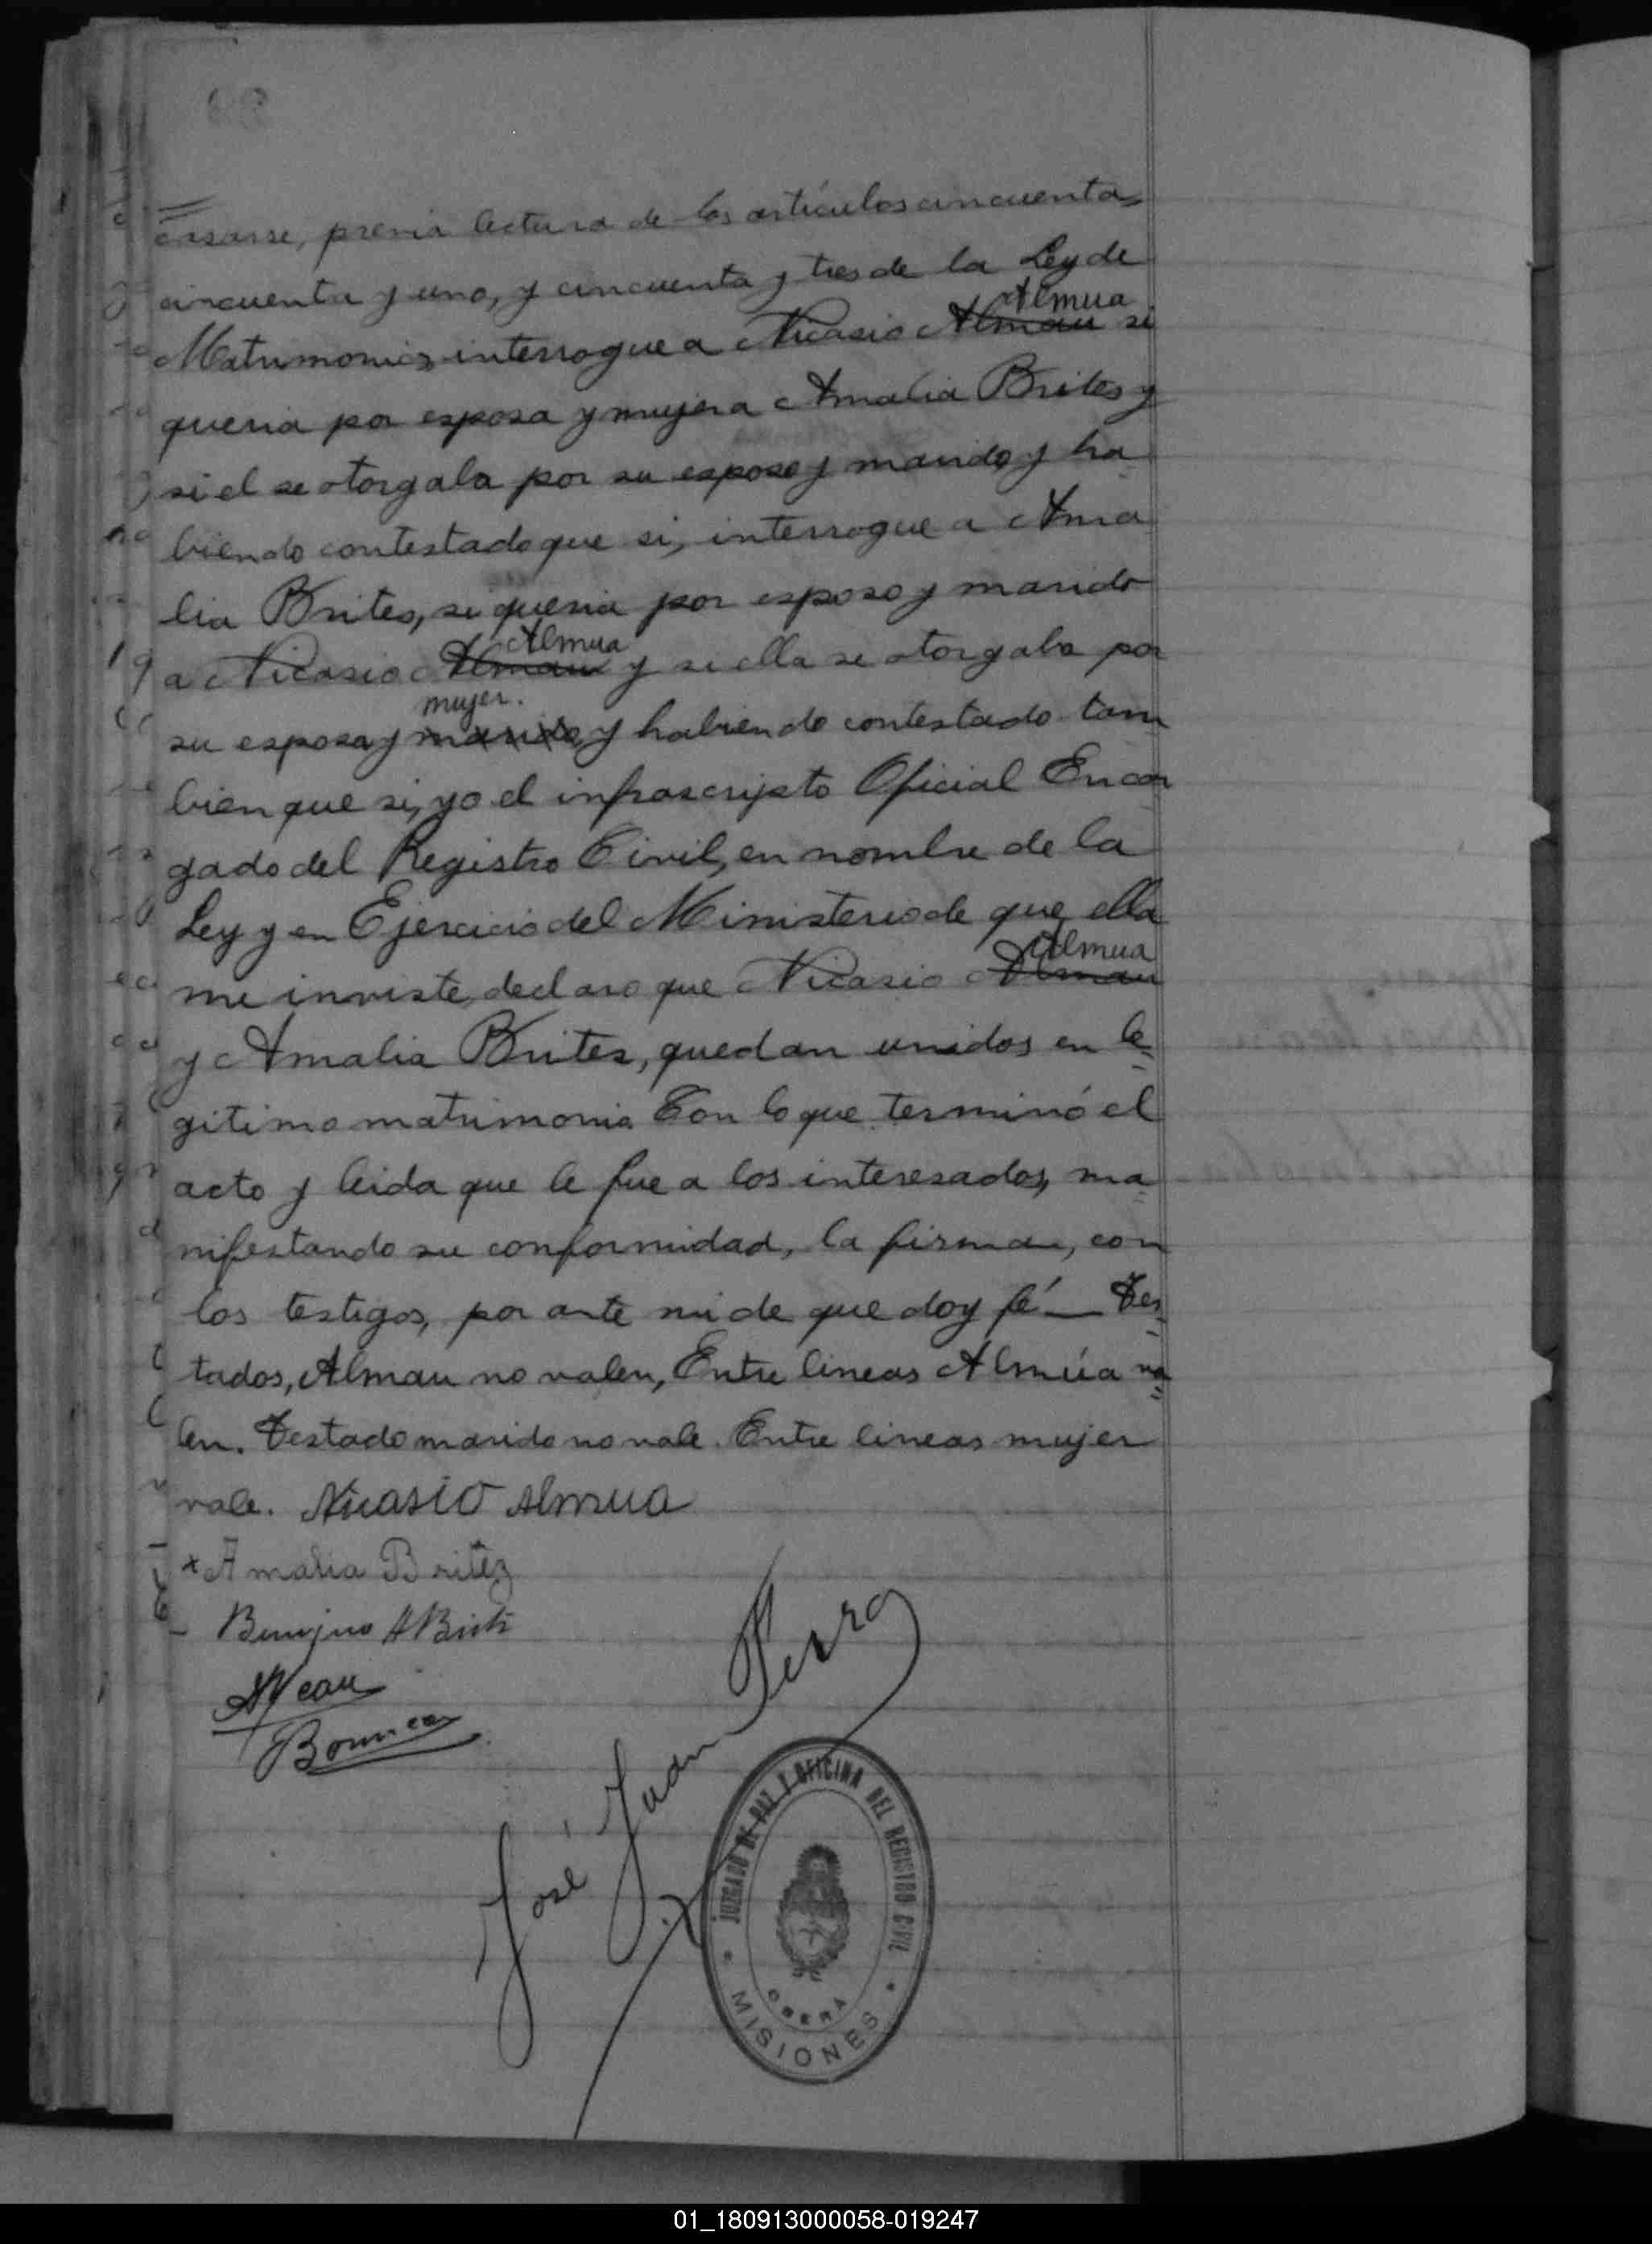 casarse, previa lectura de los artículos cincuenta,
cincuenta y uno, y cincuenta y tres de la Ley de
Almua
Matrimonio, interrogue a Nicasio Almau si
queria por esposa y mujer a Amalia Brites y
si el se otorgaba por su esposo y marido y ha
biendo contestado que si, interrogue a Ama
lia Brites, si queria por esposo y marido
Almua
a Nicasio Almau y si ella se otorgaba por
mujer.
su esposa y marido, y habiendo contestado tam
bien que si, yo el infrascripto Oficial Encar
gado del Registro Civil, en nombre de la
Ley y en Ejercicio del Ministerio de que ella
Almua
me inviste, declaro que Nicasio Almau
y Amalia Brites, quedan unidos en le-
gitimo matrimonio. Con lo que terminó el
acto y leida que le fue a los interesados, ma
nifestando su conformidad, la firman, con
los testigos, por ante mi de que doy fé. — Tes
tados, Almau no valen, Entre lineas Almúa va
len. Testado marido no vale. Entre lineas mujer
vale. Nicasio Almua
x Amalia Britez
José Juan
JUZGADO DE PAZ Y OFICINA DEL REGISTRO CIVIL
OBERA
MISIONES
01_180913000058-019247